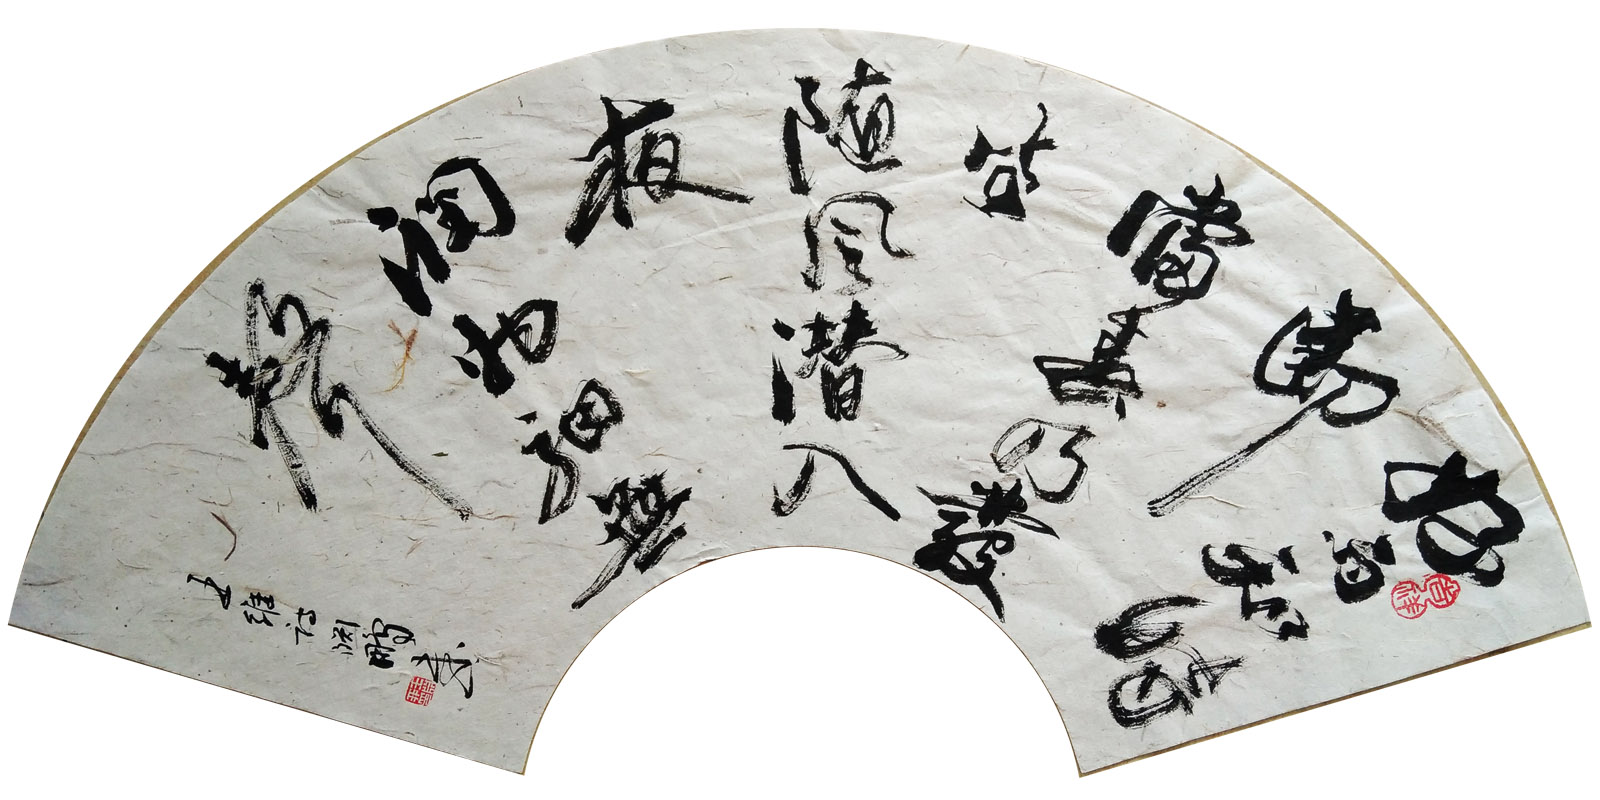 好雨知時
節
當春乃發
生
随風潜入
夜
潤物細無
聲
吉祥